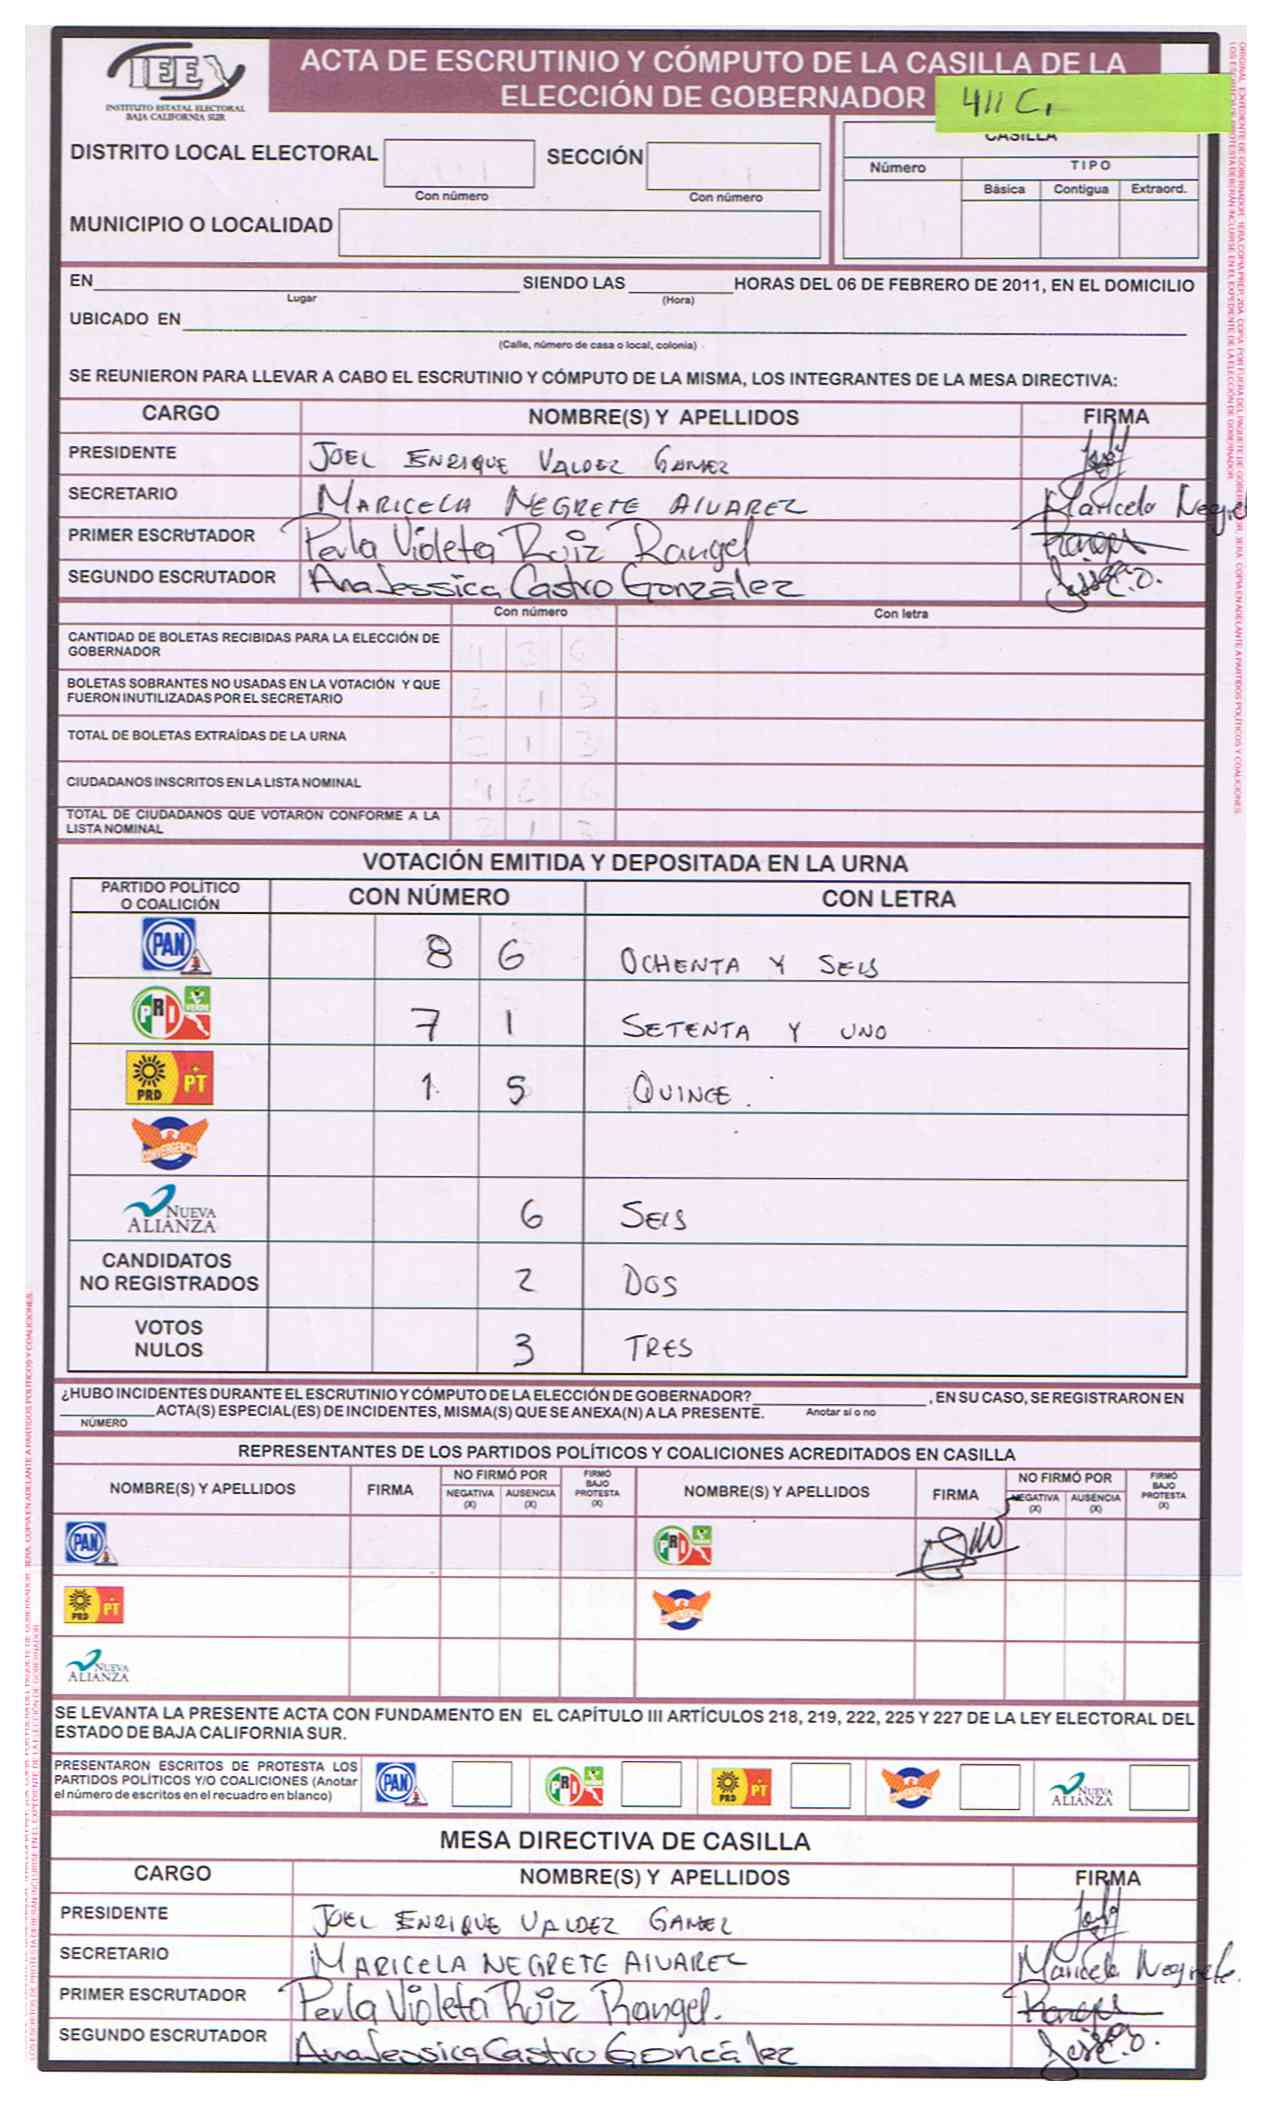 IEE
INSTITUTO ESTATAL ELECTORAL
BAJA CALIFORNIA SUR
ACTA DE ESCRUTINIO Y CÓMPUTO DE LA CASILLA DE LA
ELECCIÓN DE GOBERNADOR
411 C1
DISTRITO LOCAL ELECTORAL
Con número
SECCIÓN
Con número
CASILLA
Número
TIPO
Básica Contigua Extraord.
MUNICIPIO O LOCALIDAD
EN SIENDO LAS HORAS DEL 06 DE FEBRERO DE 2011, EN EL DOMICILIO
Lugar (Hora)
UBICADO EN
(Calle, número de casa o local, colonia)
SE REUNIERON PARA LLEVAR A CABO EL ESCRUTINIO Y CÓMPUTO DE LA MISMA, LOS INTEGRANTES DE LA MESA DIRECTIVA:
CARGO NOMBRE(S) Y APELLIDOS FIRMA
PRESIDENTE JOEL ENRIQUE VALDEZ GAMEZ
SECRETARIO MARICELA NEGRETE ALVAREZ Maricela Negrete
PRIMER ESCRUTADOR Perla Violeta Ruiz Rangel Rangel
SEGUNDO ESCRUTADOR Ana Jessica Castro González
Con número Con letra
CANTIDAD DE BOLETAS RECIBIDAS PARA LA ELECCIÓN DE
GOBERNADOR
BOLETAS SOBRANTES NO USADAS EN LA VOTACIÓN Y QUE
FUERON INUTILIZADAS POR EL SECRETARIO 2 1 3
TOTAL DE BOLETAS EXTRAÍDAS DE LA URNA 2 1 3
CIUDADANOS INSCRITOS EN LA LISTA NOMINAL
TOTAL DE CIUDADANOS QUE VOTARON CONFORME A LA
LISTA NOMINAL 2 1 3
VOTACIÓN EMITIDA Y DEPOSITADA EN LA URNA
PARTIDO POLÍTICO
O COALICIÓN
CON NÚMERO CON LETRA
PAN 8 6 OCHENTA Y SEIS
PRI VERDE 7 1 SETENTA Y UNO
PRD PT 1 5 QUINCE.
CONVERGENCIA
NUEVA ALIANZA 6 SEIS
CANDIDATOS
NO REGISTRADOS 2 DOS
VOTOS
NULOS 3 TRES
¿HUBO INCIDENTES DURANTE EL ESCRUTINIO Y CÓMPUTO DE LA ELECCIÓN DE GOBERNADOR? , EN SU CASO, SE REGISTRARON EN
ACTA(S) ESPECIAL(ES) DE INCIDENTES, MISMA(S) QUE SE ANEXA(N) A LA PRESENTE. Anotar sí o no
NÚMERO
REPRESENTANTES DE LOS PARTIDOS POLÍTICOS Y COALICIONES ACREDITADOS EN CASILLA
NOMBRE(S) Y APELLIDOS FIRMA NO FIRMÓ POR NEGATIVA (X) AUSENCIA (X) FIRMÓ BAJO PROTESTA (X) NOMBRE(S) Y APELLIDOS FIRMA NO FIRMÓ POR NEGATIVA (X) AUSENCIA (X) FIRMÓ BAJO PROTESTA (X)
PAN PRI VERDE
PRD PT CONVERGENCIA
NUEVA ALIANZA
SE LEVANTA LA PRESENTE ACTA CON FUNDAMENTO EN EL CAPÍTULO III ARTÍCULOS 218, 219, 222, 225 Y 227 DE LA LEY ELECTORAL DEL
ESTADO DE BAJA CALIFORNIA SUR.
PRESENTARON ESCRITOS DE PROTESTA LOS
PARTIDOS POLÍTICOS Y/O COALICIONES (Anotar
el número de escritos en el recuadro en blanco)
PAN PRI VERDE PRD PT CONVERGENCIA NUEVA ALIANZA
MESA DIRECTIVA DE CASILLA
CARGO NOMBRE(S) Y APELLIDOS FIRMA
PRESIDENTE JOEL ENRIQUE VALDEZ GAMEZ
SECRETARIO MARICELA NEGRETE ALVAREZ Maricela Negrete.
PRIMER ESCRUTADOR Perla Violeta Ruiz Rangel. Rangel
SEGUNDO ESCRUTADOR Ana Jessica Castro González